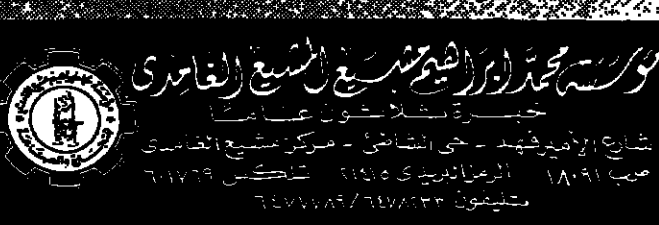 مؤسسة محمد ابراهيم مشيع المشيع الغامدى
خبرة ثلاثون عاما
شارع الأمير فهد - حى الشاطئ - مركز مشيع الغامدى
ص.ب ١٨٠٩١ الرمز البريدى ٢١٤١٥ تلكس ٦٠١٧٦٩
تليفون